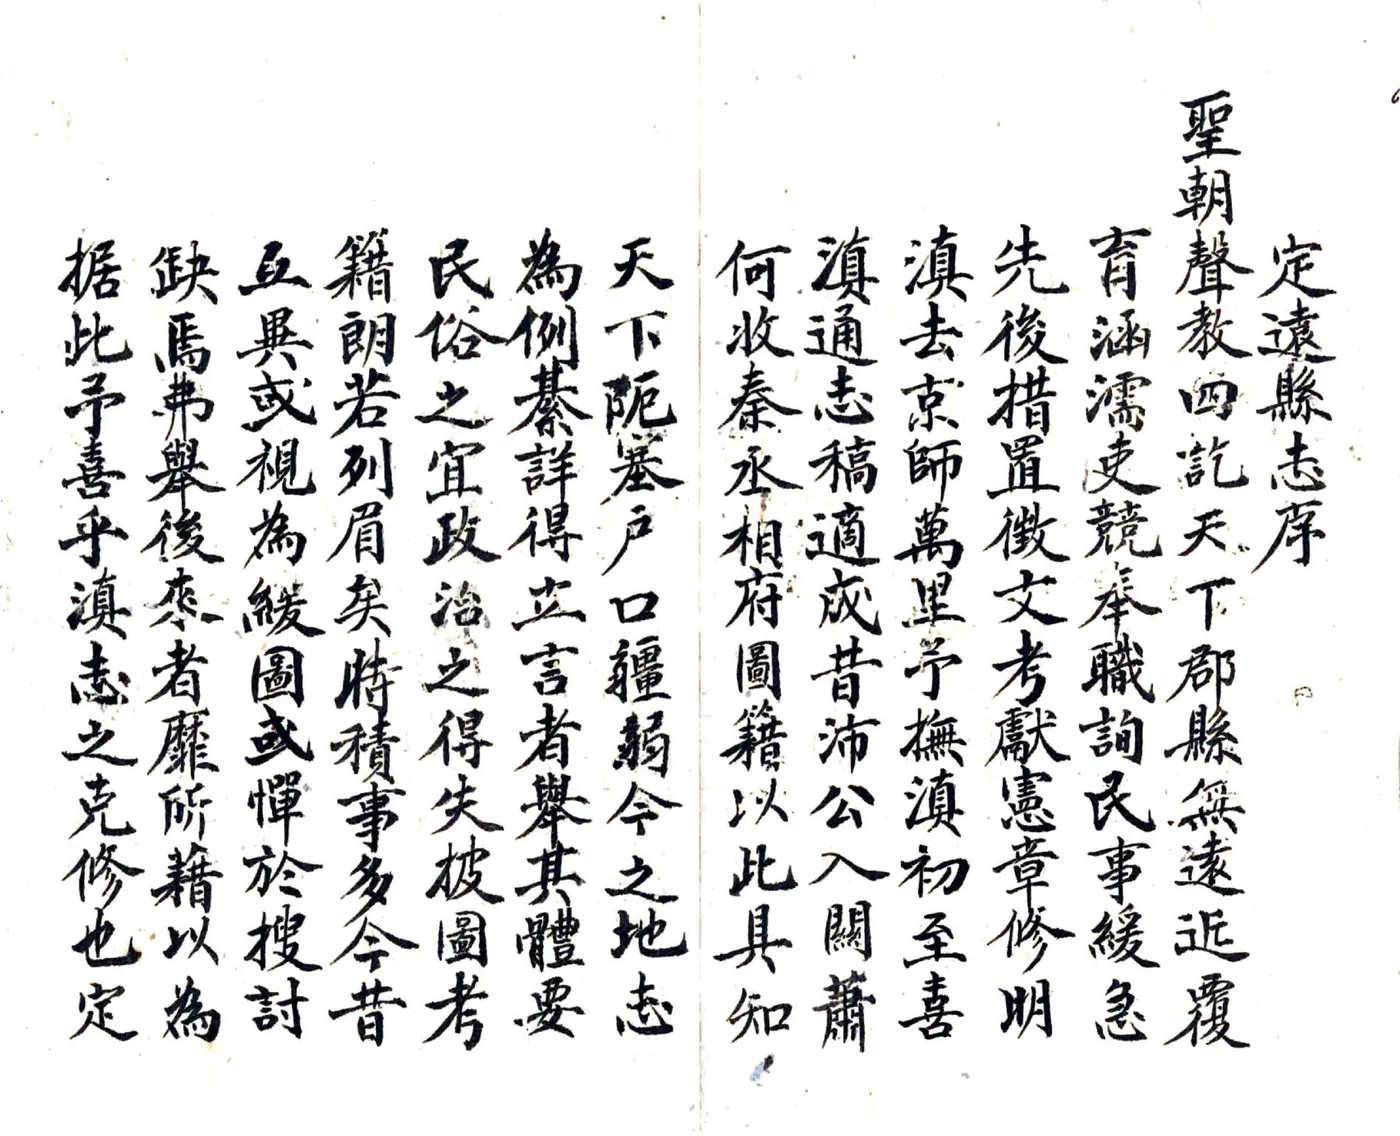 定遠縣志序
聖朝聲教四訖天下郡縣無遠近覆
育涵濡吏競奉職詢民事緩急
先後措置徵文考獻憲章修明
滇去京師萬里予撫滇初至喜
滇通志稿適成昔沛公入關蕭
何收秦丞相府圖籍以此具知
天下阨塞户口疆弱今之地志
為例綦詳得立言者舉其體要
民俗之宜政治之得失披圖考
籍朗若列眉矣時積事多今昔
互異或視為緩圖或憚於搜討
缺焉弗舉後來者靡所藉以為
据此予喜乎滇志之克修也定